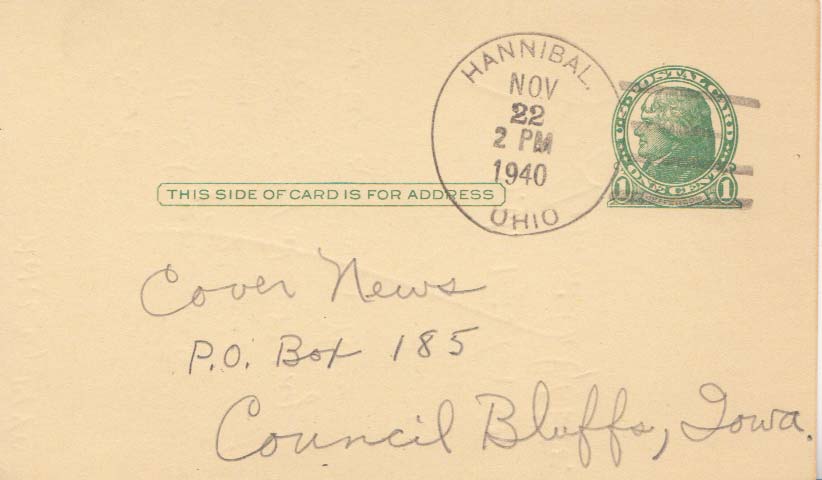 HANNIBAL.
NOV
22
2 PM
1940
OHIO
U.S. POSTAL CARD
1 ONE CENT 1
JEFFERSON
THIS SIDE OF CARD IS FOR ADDRESS
Cover News
P.O. Box 185
Council Bluffs, Iowa.